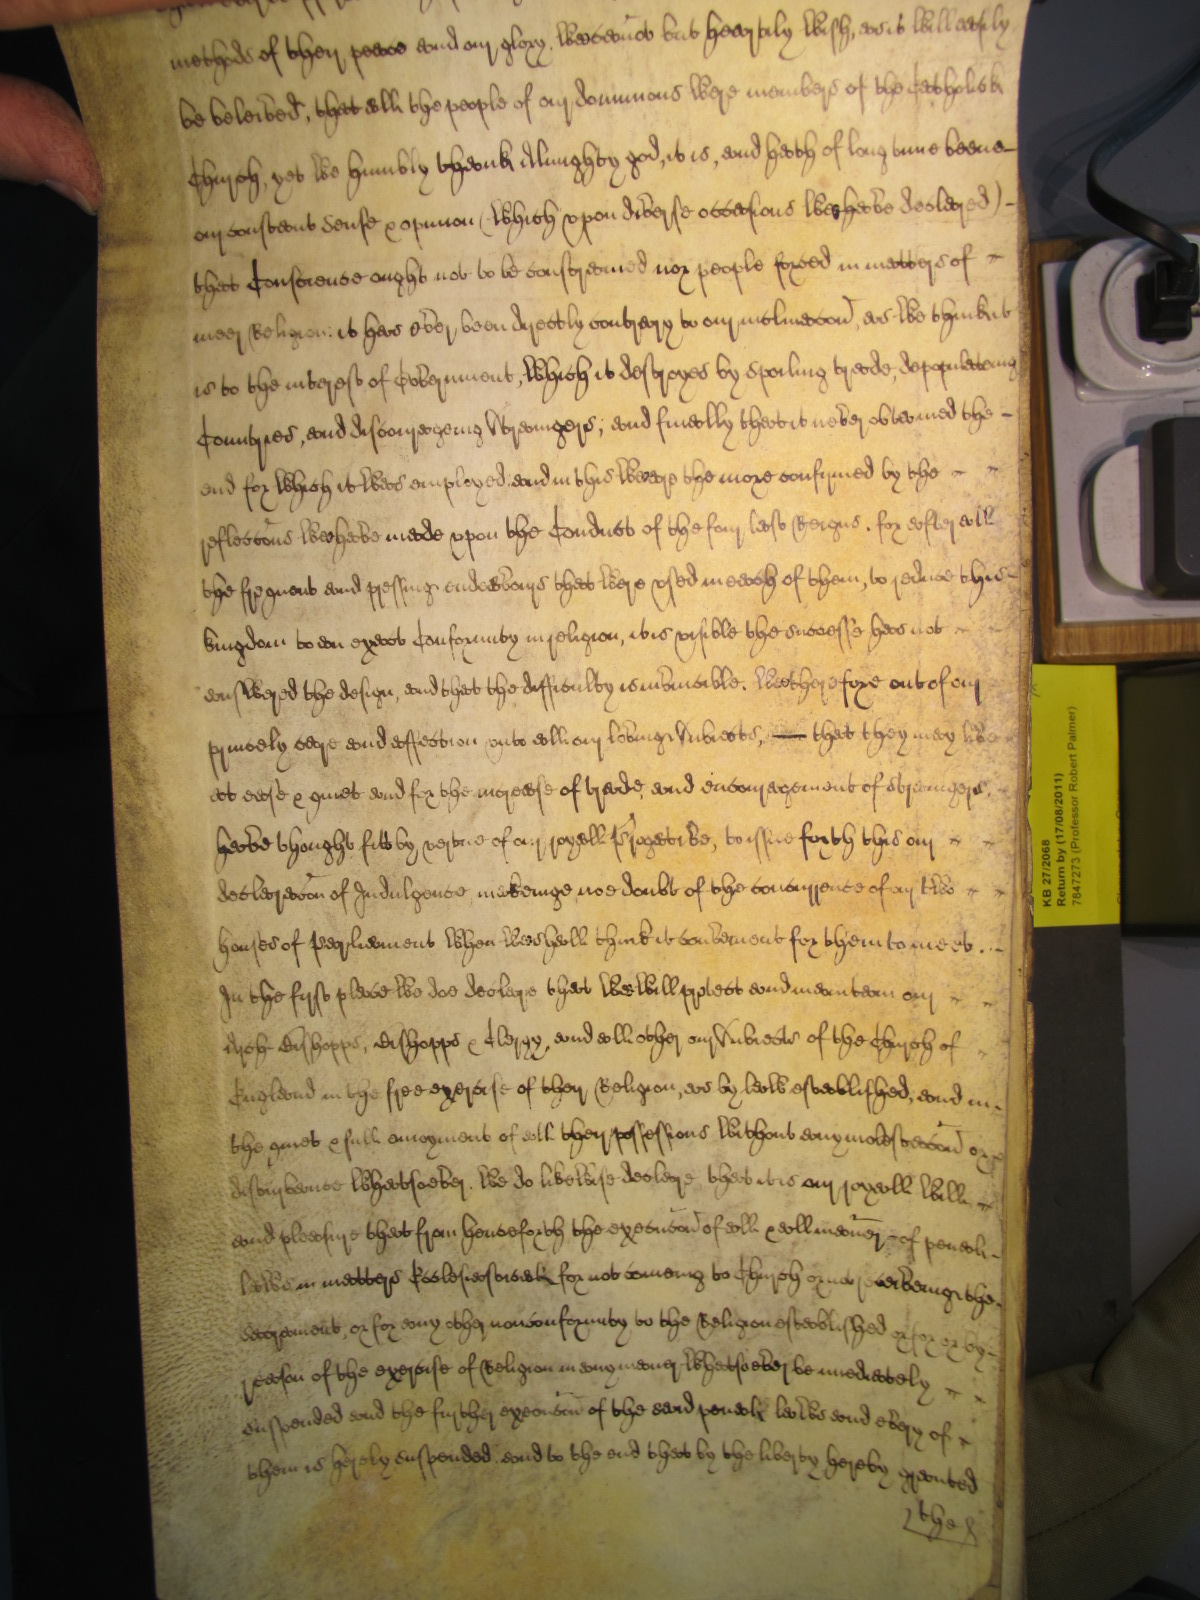 methods of their peace and our glory. Wee cannot but heartily wish, as it will easily
be beleived, that all the people of our dominions were members of the Catholick
Church, yet we humbly thank Almighty god, it is, and hath of long time beene
our constant sense & opinion (which upon diverse occasions wee have declared)
that Conscience ought not to be constrained nor people forced in matters of
meer Religion: it has ever been directly contrary to our inclinacon, as we think it
is to the interest of Government, which it destroyes by spoiling trade, depopulateing
Countries, and discourageing Strangers; and finally that it never obtained the
end for which it was employed: and in this wee are the more confirmed by the
reflections wee have made upon the Conduct of the four last Reigns. for after all
the frequent and pressing endeavours that were used in each of them, to reduce this
kingdom to an exact Conformity in religion, it is visible the successe has not
answered the design, and that the difficulty is invincible. Wee therefore out of our
princely care and affection unto all our loving Subiects, that they may live
at ease & quiet and for the increase of trade, and encouragement of strangers,
have thought fitt by vertue of our royall Prerogative, to issue forth this our
declaracon of Indulgence, makeinge noe doubt of the concurrence of our two
houses of Parliament when wee shall think it convenient for them to meet.
In the first place we doe declare that wee will protect and maintain our
Arch-Bishopps, Bishopps & Clergy, and all other our Subiects of the Church of
England in the free exercise of their Religion, as by law established, and in
the quiet & full enioyment of all their possessions without any molestacon or
disturbance whatsoever. We do likewise declare that it is our royall will
and pleasure that from henceforth the execucon of all & all manner of penall
lawes in matters Ecclesiasticall for not comeing to Church or not receiveing the
sacrament, or for any other nonconformity to the Religion established or for or by
reason of the exercise of Religion in any maner whatsoever be imediately
suspended and the further execucon of the said penall lawes and every of
them is hereby suspended. and to the end that by the liberty hereby granted
the
KB 27/2068
Return by (17/08/2011)
7847273 (Professor Robert Palmer)